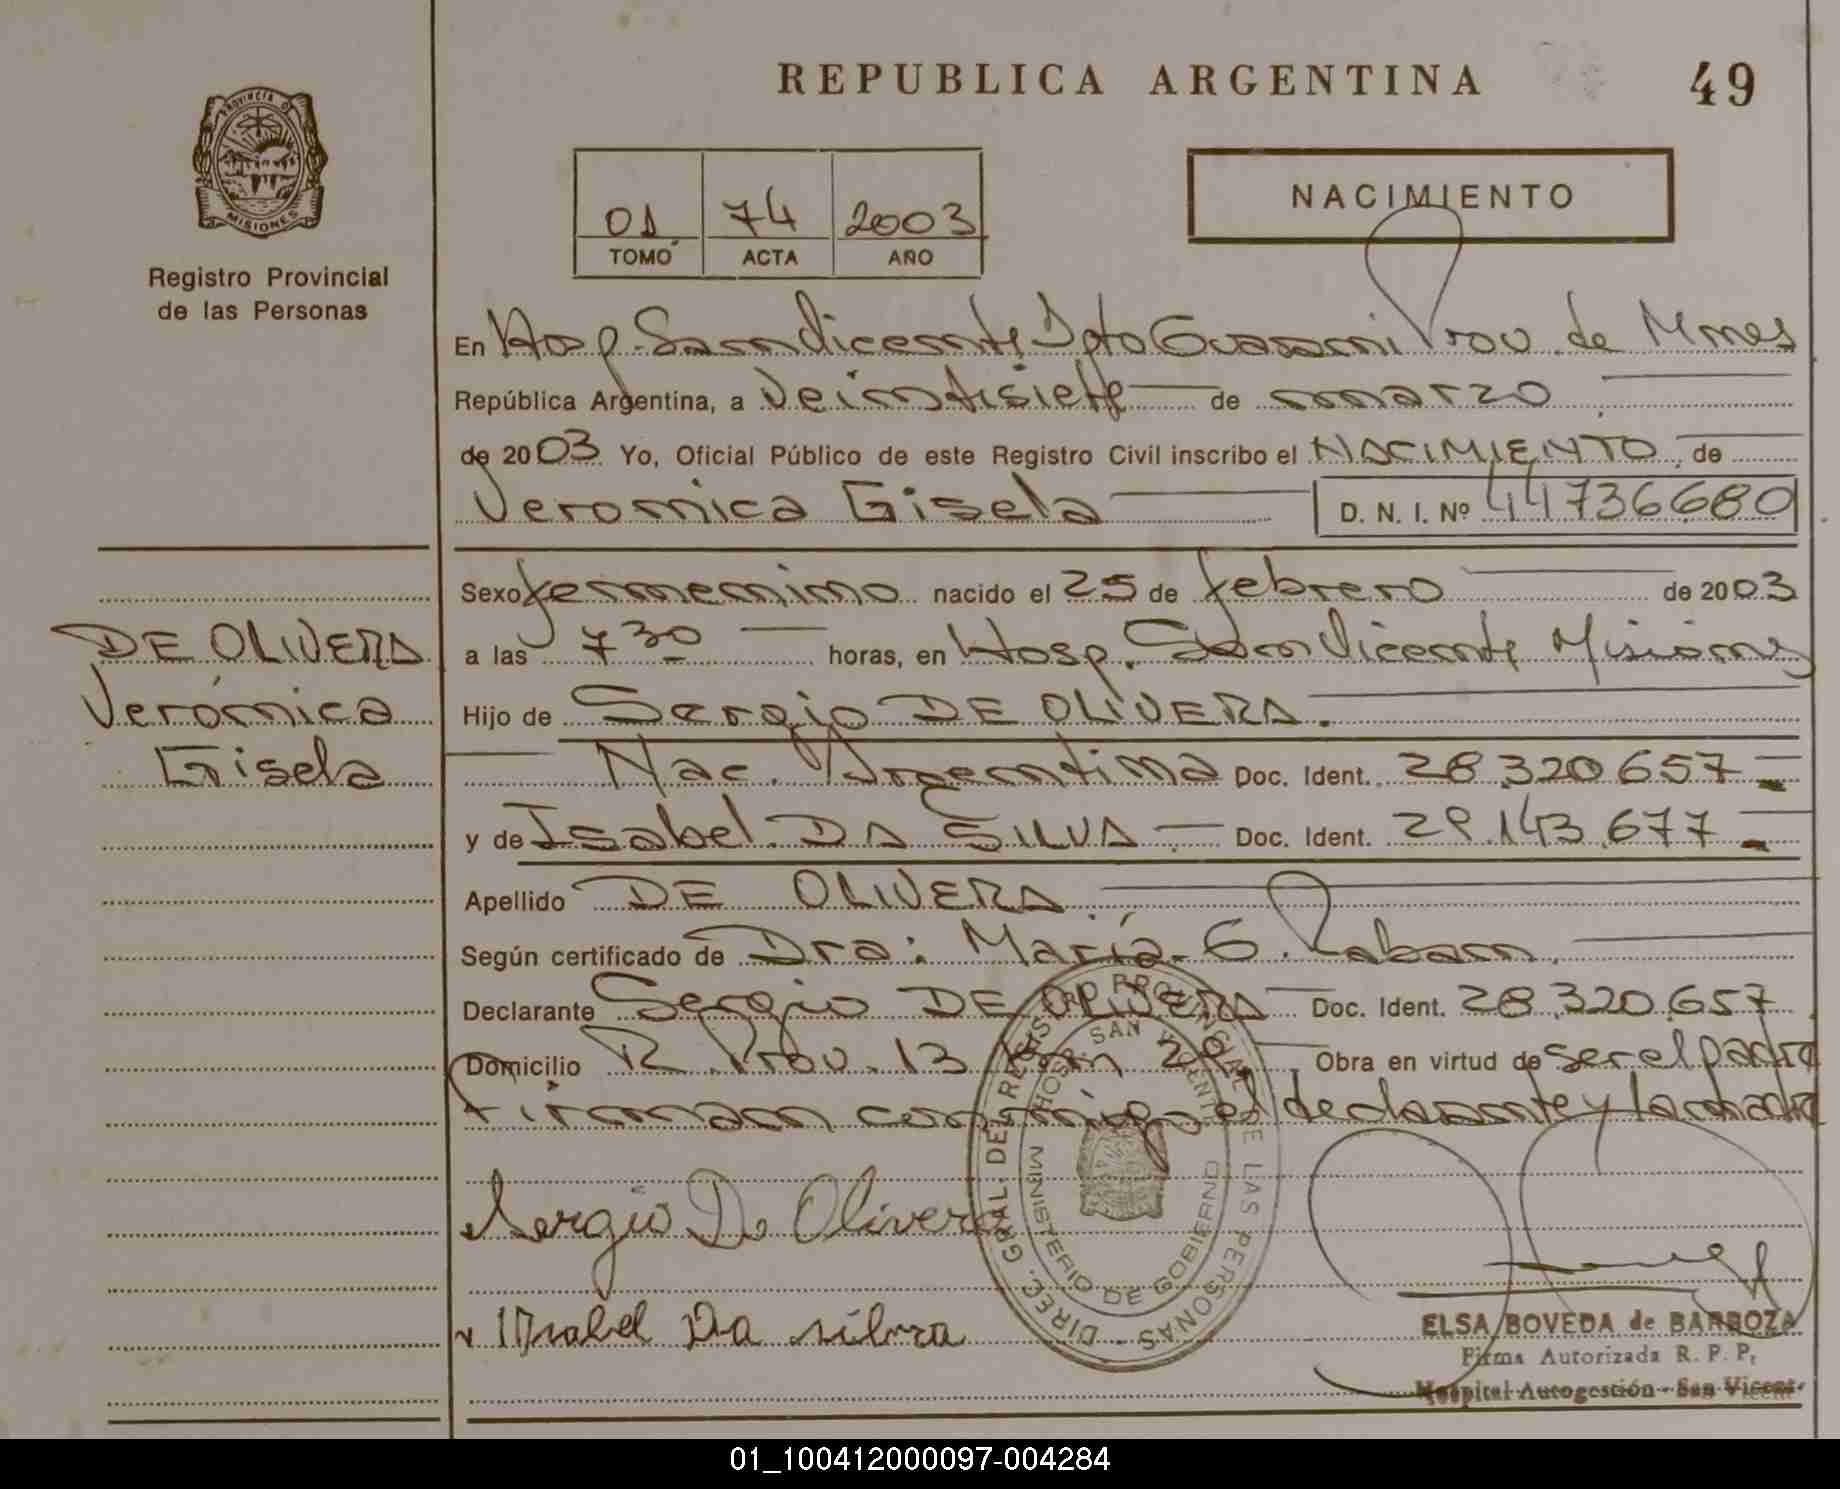 REPUBLICA ARGENTINA
49
PROVINCIA DE
MISIONES
Registro Provincial
de las Personas
01 74 2003
TOMO ACTA AÑO
NACIMIENTO
En Hosp. San Vicente Dpto Guarani Prov. de Mnes
República Argentina, a Veintisiete de marzo
de 2003 Yo, Oficial Público de este Registro Civil inscribo el NACIMIENTO de
Veronica Gisela D. N. I. Nº 44736680
Sexo femenino nacido el 25 de febrero de 2003
DE OLIVERA
Verónica
Gisela
a las 7 30 horas, en Hosp. San Vicente Misiones
Hijo de Sergio DE OLIVERA.
Nac. Argentina Doc. Ident. 28.320.657
y de Isabel DA SILVA Doc. Ident. 29.143.677
Apellido DE OLIVERA
Según certificado de Dra: María G. Raban.
Declarante Sergio DE OLIVERA Doc. Ident. 28.320.657
Domicilio R. Prov. 13 km 29. Obra en virtud de ser el padre
Firman conmigo el declarante y la madre
Sergio De Olivera
Isabel Da silva
DIREC. GRAL. DEL REGISTRO PROVINCIAL DE LAS PERSONAS
HOSP. SAN VICENTE
MINISTERIO DE GOBIERNO
ELSA BOVEDA de BARBOZA
Firma Autorizada R. P. P.
Hospital Autogestión - San Vicente
01_100412000097-004284